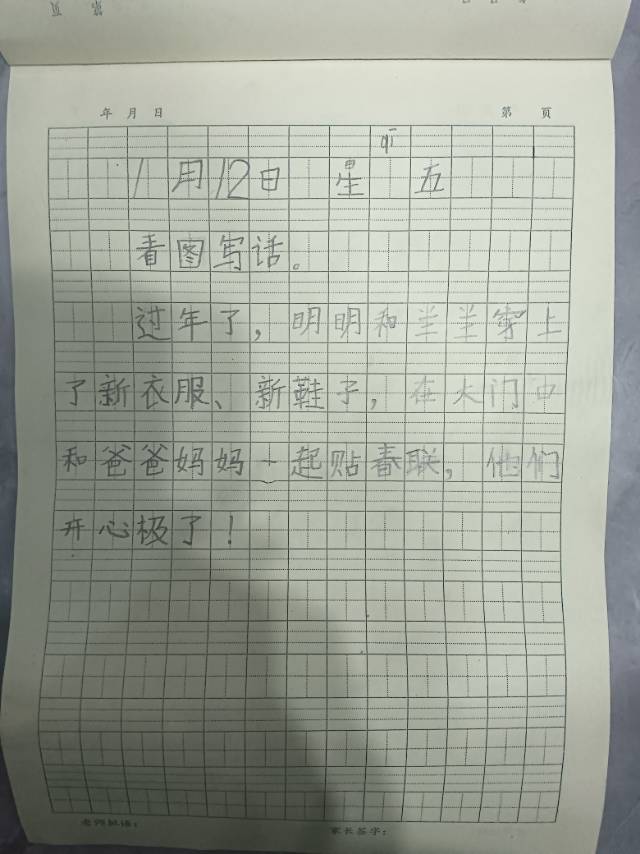 第 页
年 月 日 第 页
qī
1月12日 星 五
看图写话。
过年了，明明和兰兰穿上
了新衣服、新鞋子，在大门口
和爸爸妈妈一起贴春联，他们
开心极了！
老师批语： 家长签字：